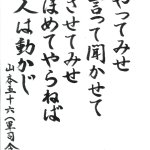 やってみせ
言って聞かせて
させてみせ
ほめてやらねば
人は動かじ
山本五十六(軍司令